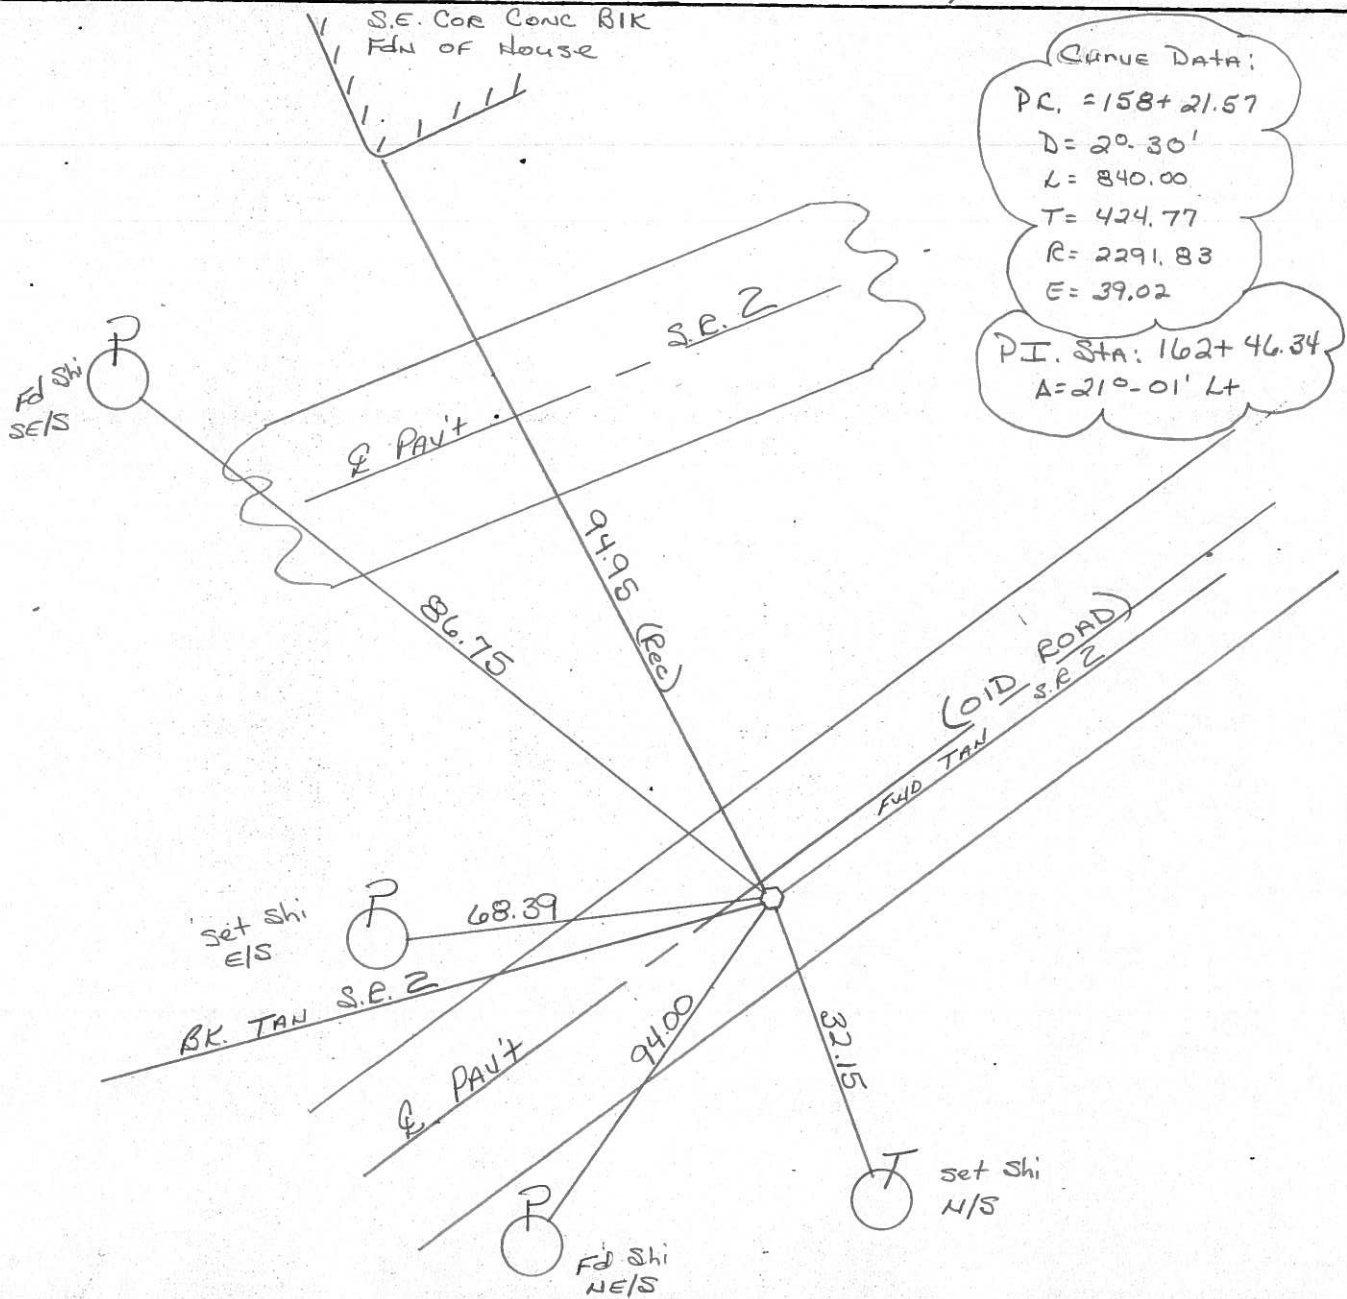 S.E. COR CONC BlK
FdN OF House
Curve DATA:
P.C. = 158+21.57
D = 2°-30'
L = 840.00
T = 424.77
R = 2291.83
E = 39.02
P.I. StA: 162+46.34
Δ=21°-01' Lt
P
Fd Shi
SE/S
S.R. 2
℄ PAV't
94.95 (Rec)
86.75
(OlD ROAD)
S.R. 2
FWD TAN
P
set shi
E/S
68.39
BK. TAN S.R. 2
℄ PAV't
94.00
32.15
P
F'd Shi
NE/S
T
set Shi
N/S